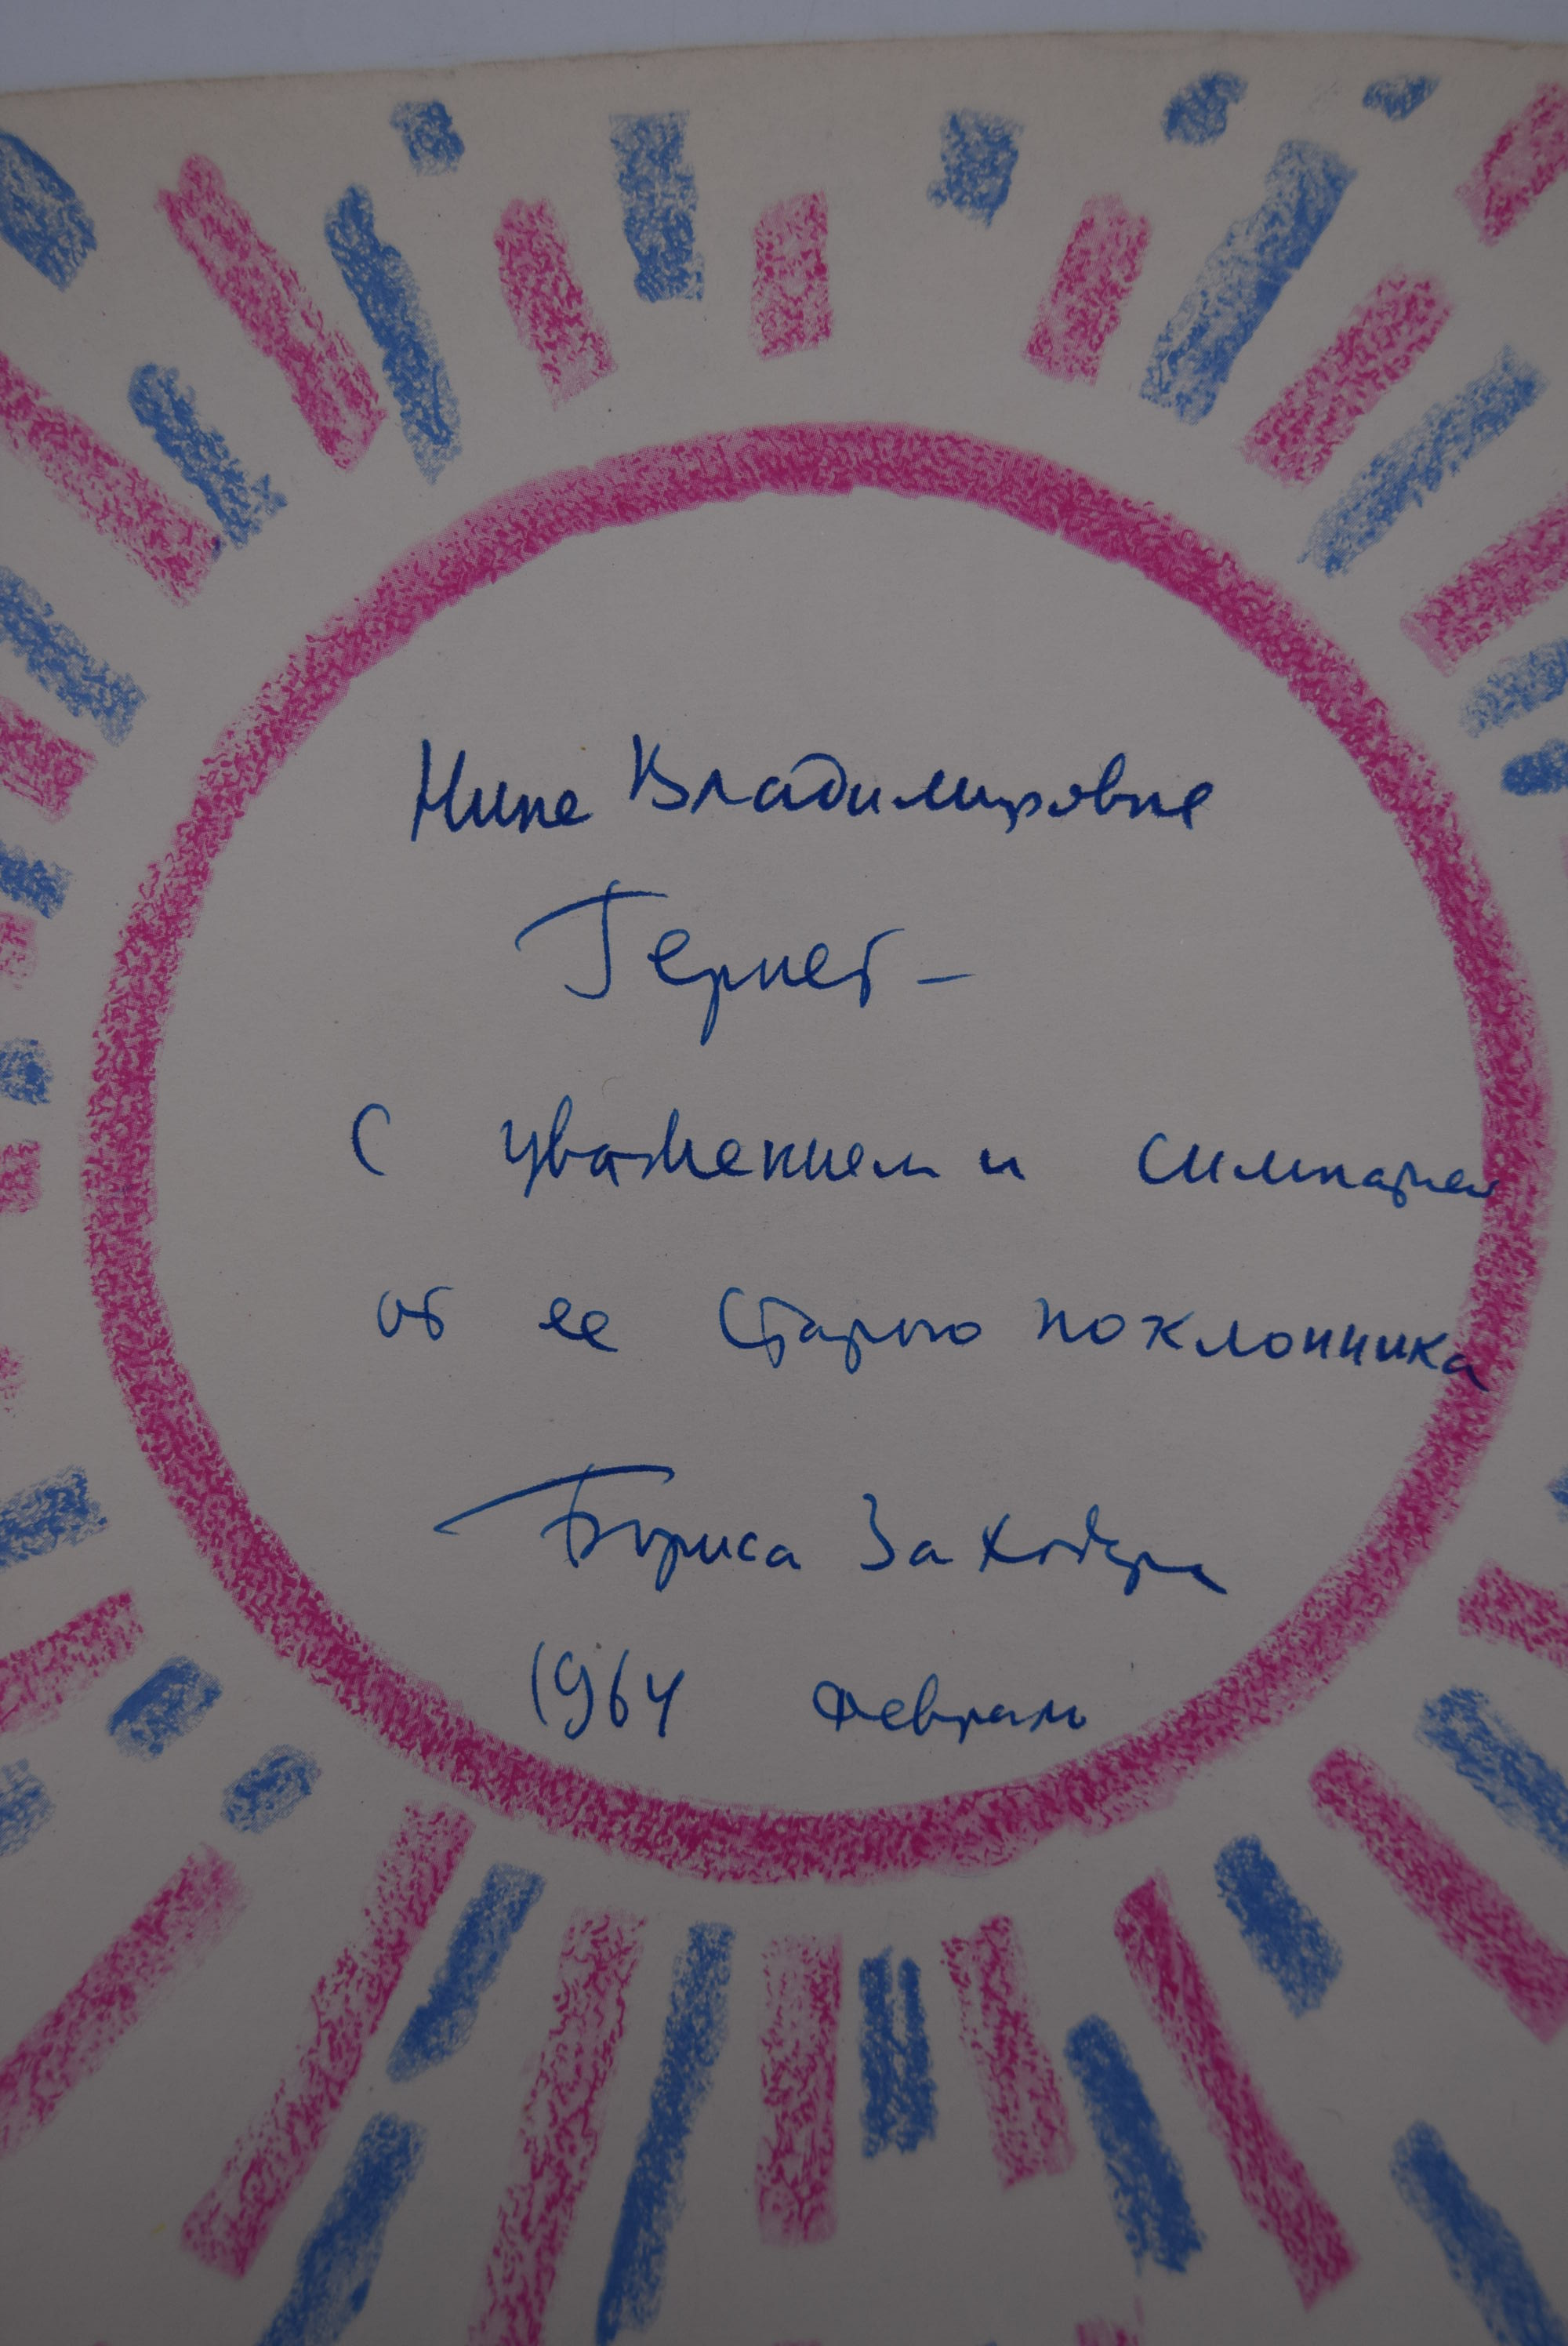 Нине Владимировне
Гернет –
С уважением и симпатией
от ее старого поклонника
Бориса Заходера
1964 февраль